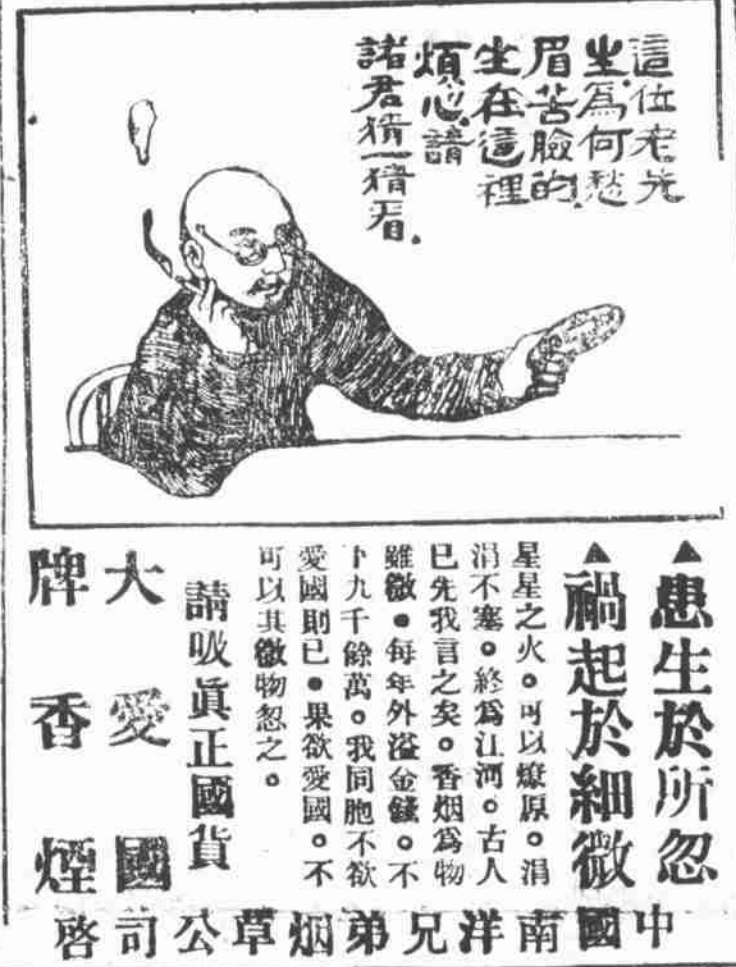 這位老先
生.爲何愁
眉苦臉的.
坐在這裡
煩心.請
諸君猜一猜看.
▲患生於所忽
▲禍起於細微
星星之火。可以燎原。涓
涓不塞。終爲江河。古人
已先我言之矣。香烟爲物
雖微●每年外溢金錢。不
卜九千餘萬。我同胞不欲
愛國則已●果欲愛國。不
可以其微物忽之。
請吸眞正國貨
大愛國
牌香煙
中國南洋兄弟烟草公司啓